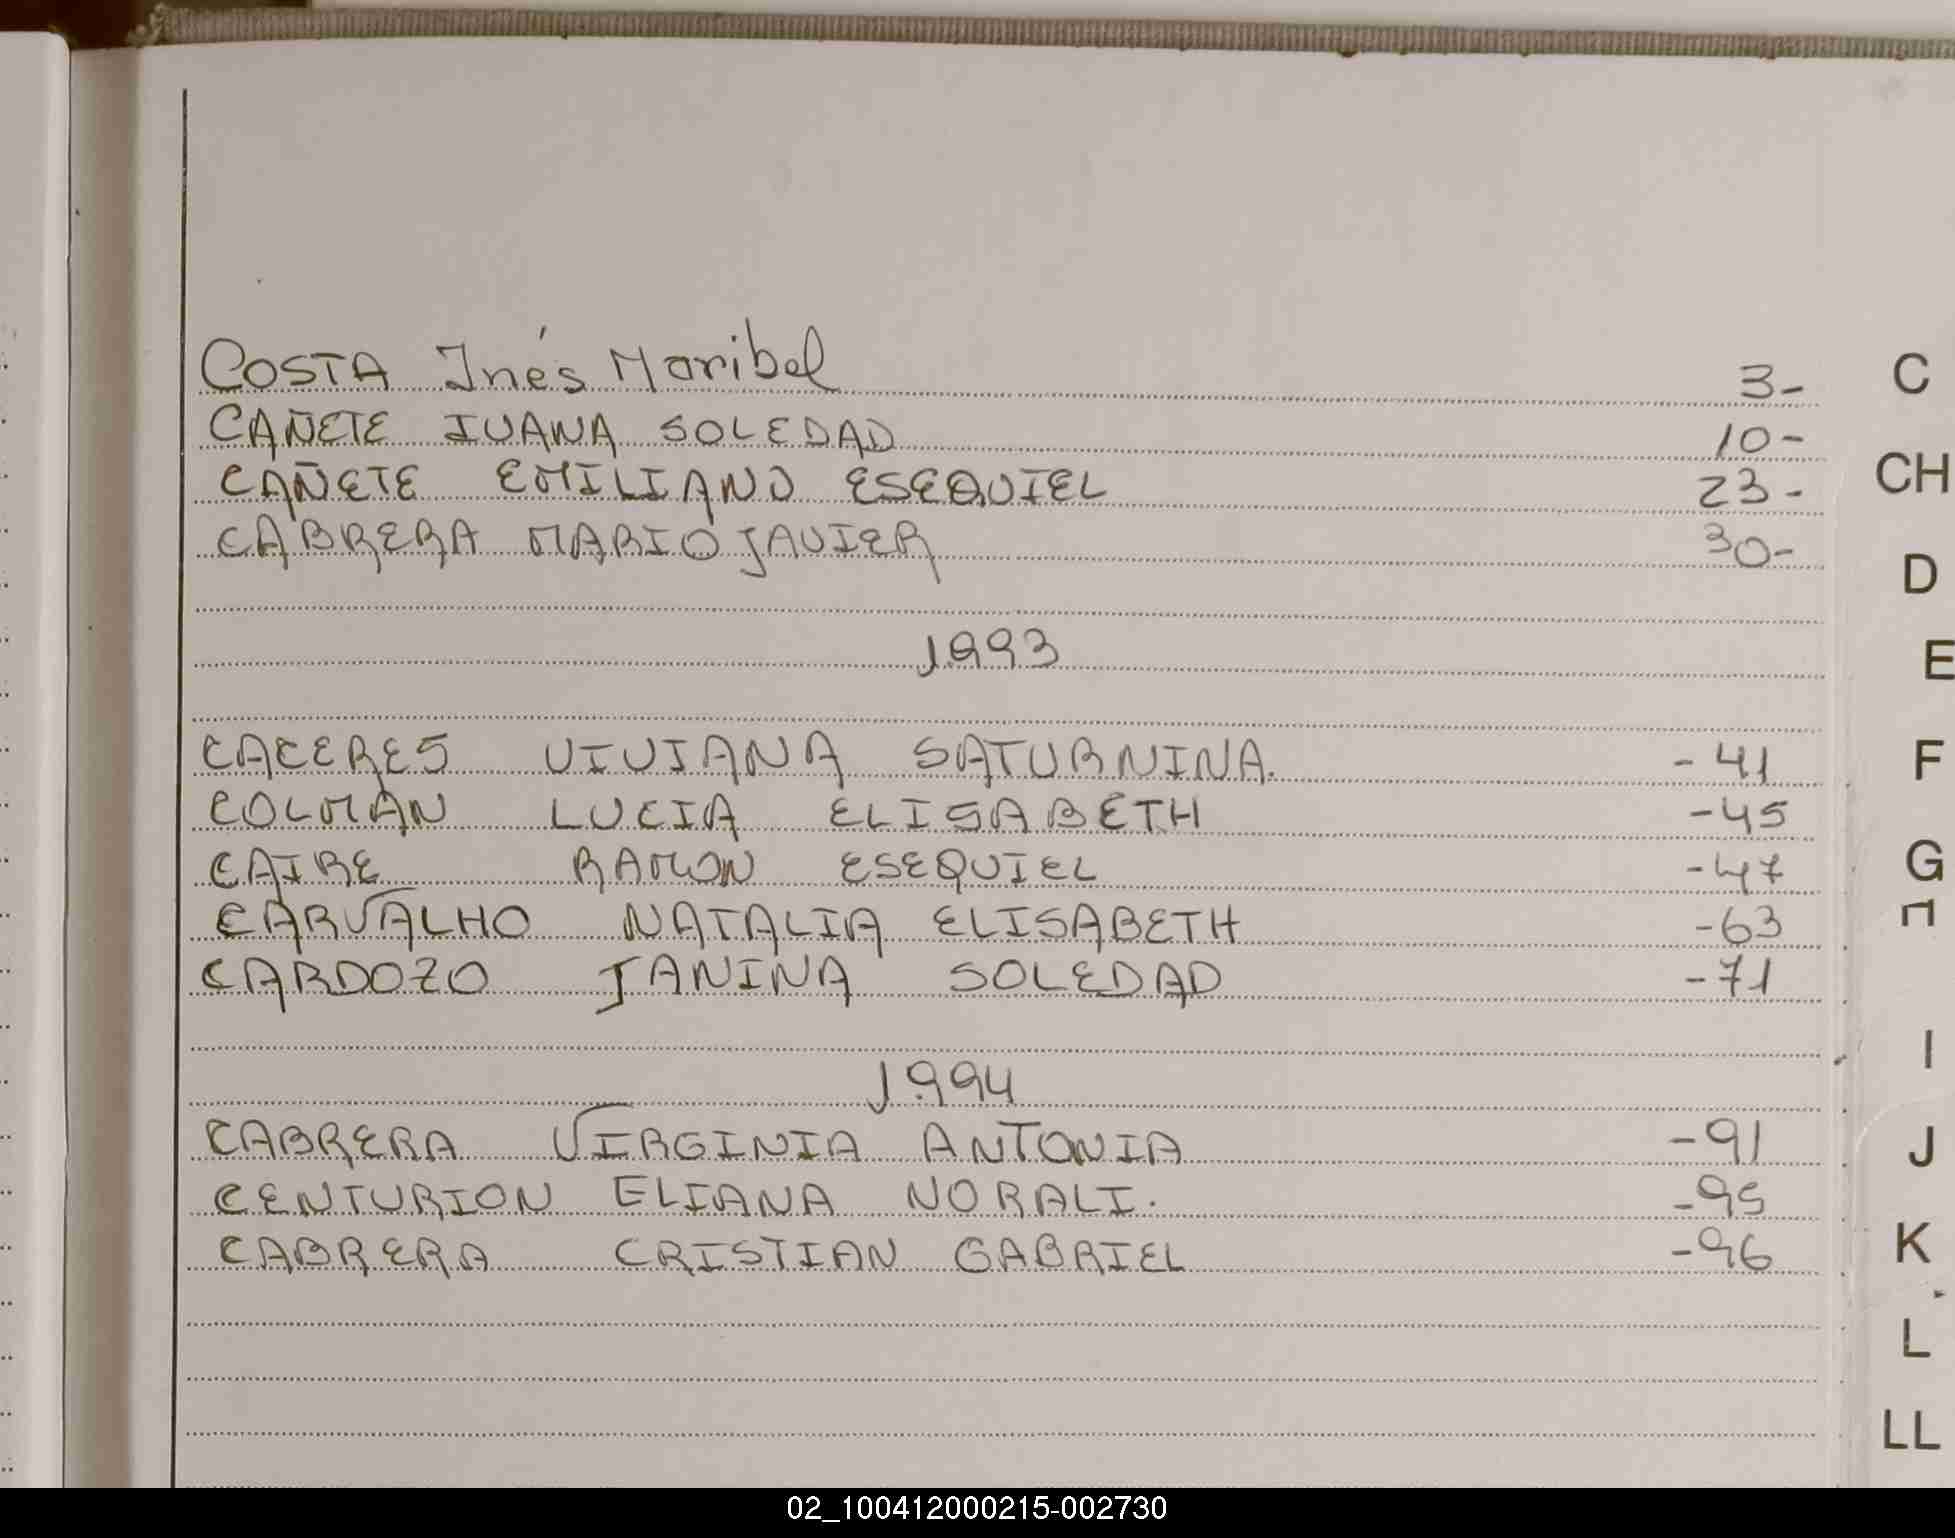 COSTA Inés Maribel 3-
CAÑETE JUANA SOLEDAD 10-
CAÑETE EMILIANO ESEQUIEL 23-
CABRERA MARIO JAVIER 30-
1993
CACERES VIVIANA SATURNINA. -41
COLMAN LUCIA ELISABETH -45
CAIRE RAMON ESEQUIEL -47
CARVALHO NATALIA ELISABETH -63
CARDOZO JANINA SOLEDAD -71
1.994
CABRERA VIRGINIA ANTONIA -91
CENTURION ELIANA NORALI. -95
CABRERA CRISTIAN GABRIEL -96
C
CH
D
E
F
G
H
I
J
K
L
LL
02_100412000215-002730